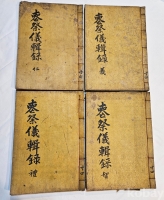 喪祭儀輯録 仁
喪祭儀輯録 義
喪祭儀輯録 禮
喪祭儀輯録 智